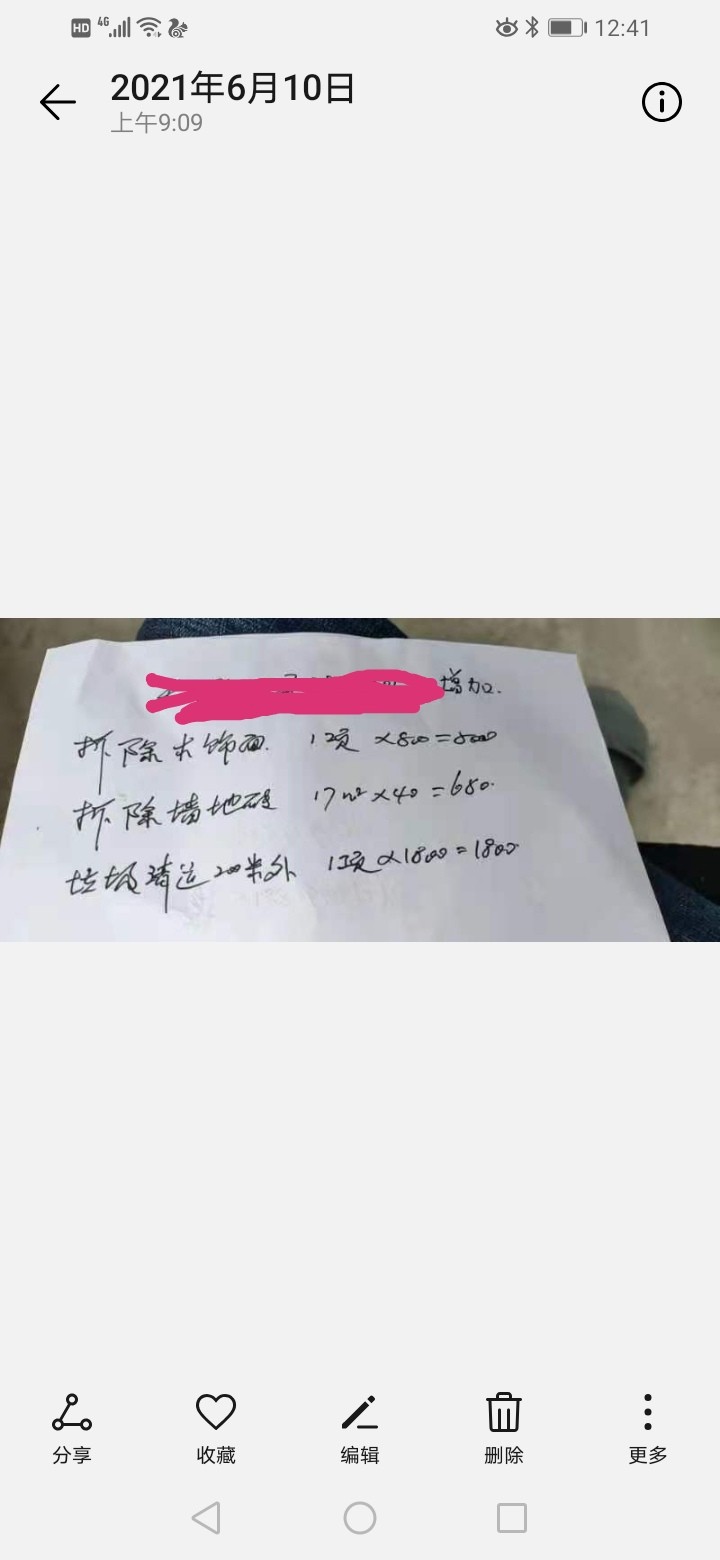 HD 4G 12:41
2021年6月10日
上午9:09
增加.
拆除木饰面. 1项 ×800=800
拆除墙地砖 17m²×40=680.
垃圾清运200米外 1项×1800=1800
分享 收藏 编辑 删除 更多